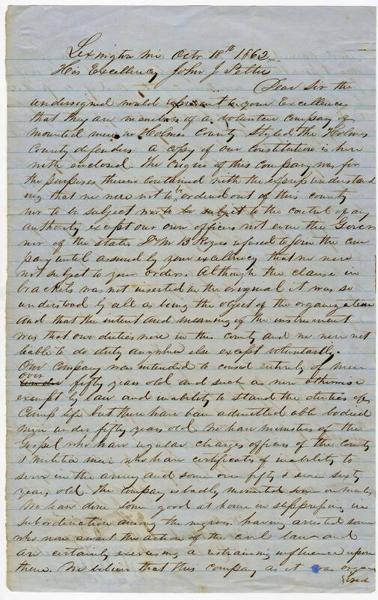 Lexington Mi. Octr 18th 1862
His Excellency John J Pettus
Dear Sir the
undersigned would represent to your Excellency
that they are members of a volunteer company of
mounted men in Holmes County styled the Holmes
County defenders. A copy of our constitution is here
with enclosed. The origin of this company was for
the purposes therein contained with the express understand
ing that we were not to be ordered out of this county
nor to be subject to the control of any
authority except our own officers not even the Gover
nor of the state refused to join the com
pany until assured by your excellency that we were
not subject to your orders. Although the clause in
brackets was not inserted in the original it was so
understood by all as being the object of the organization
and that the intent and meaning of the instrument
was that our duties were in this county and we were not
liable to do duty anywhere else except voluntarily.
Our company was intended to consist entirely of men
over fifty years old and such as were otherwise
exempt by law and inability to stand the duties of
Camp life but there have been admitted able bodied
men under fifty years old. We have ministers of the
Gospel who have regular charges officers of the county
& militia men who have certificates of inability to
serve in the army and some over fifty & even sixty
years old. The company is badly mounted some on mules
We have done some good at home in suppressing in
subordination among the negroes. having arrested some
who now await the action of the civil law and
are certainly exercising a restraining influence upon
them. We believe that this company as it was organ
ized